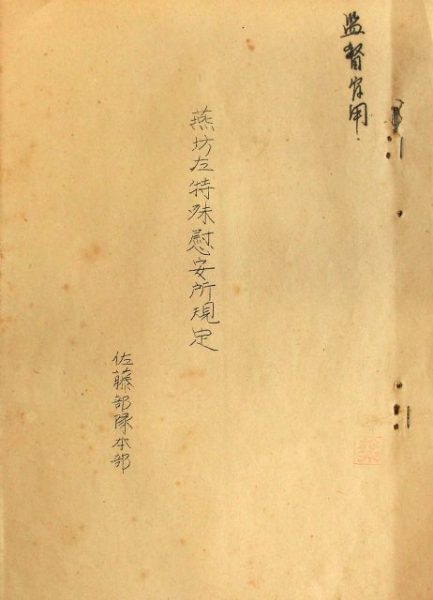 監督官用
燕坊左特殊慰安所規定
佐藤部隊本部